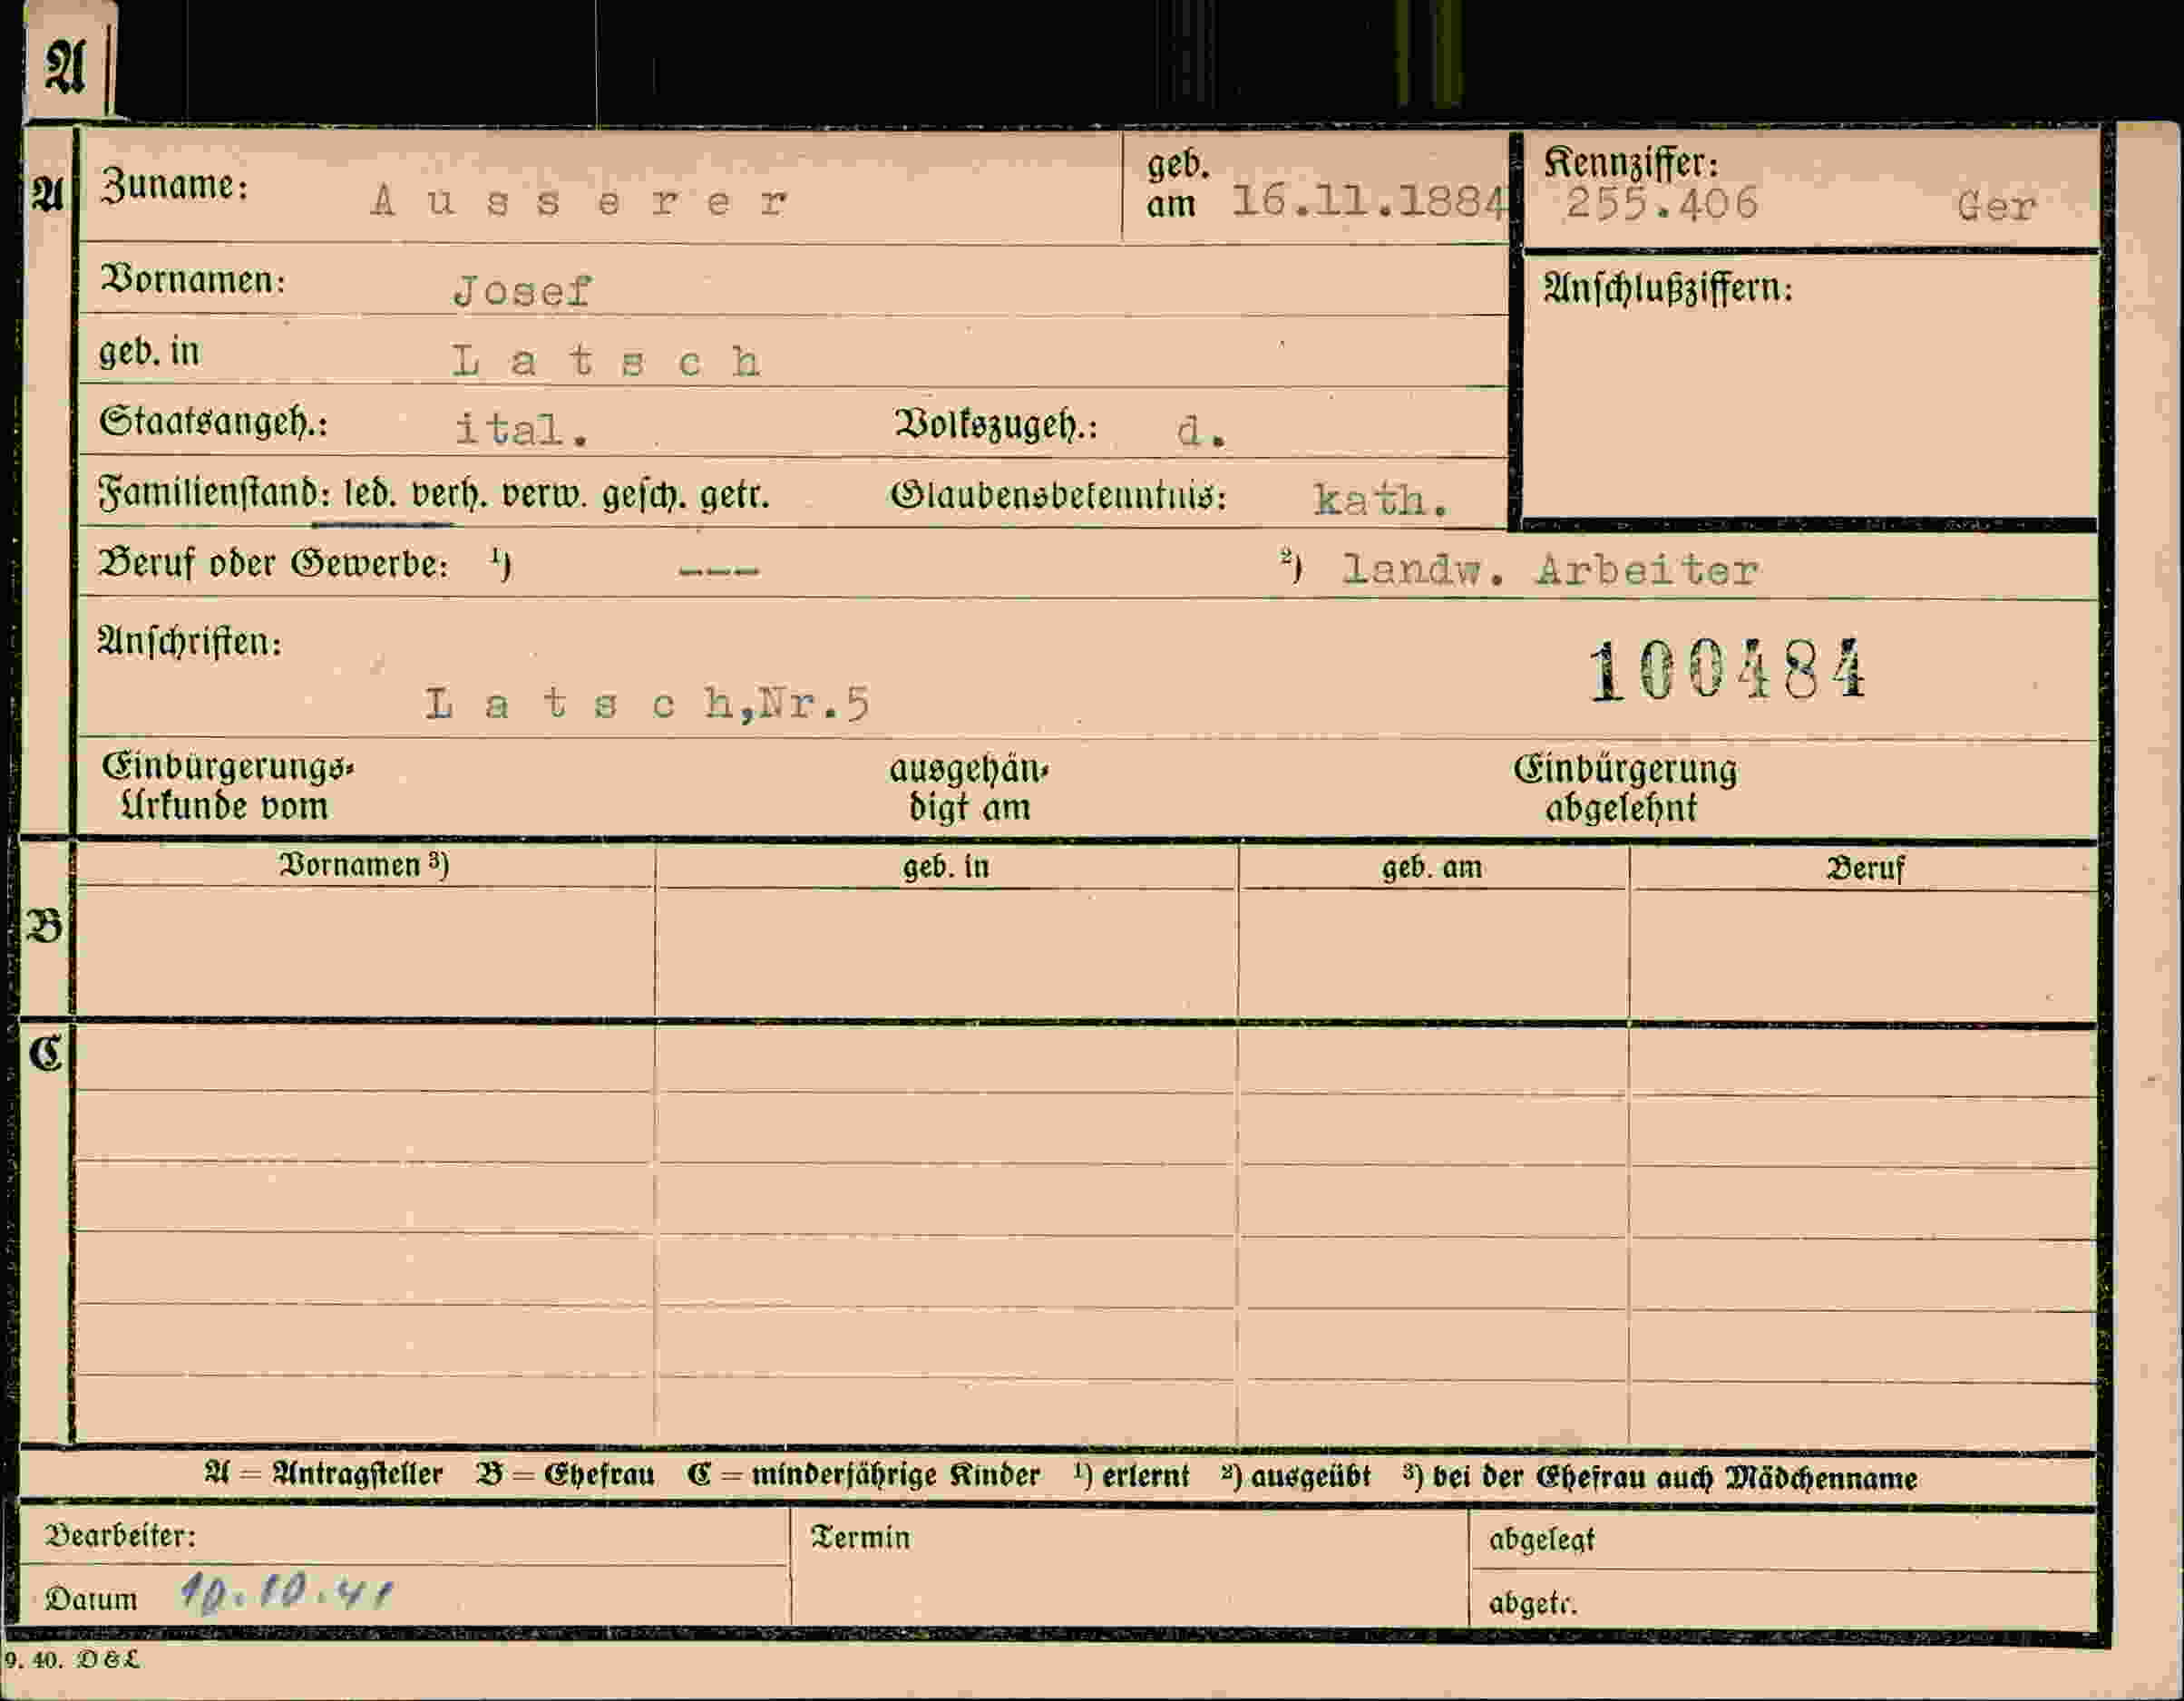 A
A Zuname: Ausserer geb. am 16.11.1884 Kennziffer: 255.406 Ger
Vornamen: Josef Anschlußziffern:
geb. in Latsch
Staatsangeh.: ital. Volkszugeh.: d.
Familienstand: led. verh. verw. gesch. getr. Glaubensbekenntnis: kath.
Beruf oder Gewerbe: ¹) --- ²) landw. Arbeiter
Anschriften: 100484
Latsch,Nr.5
Einbürgerungs- ausgehän- Einbürgerung
Urkunde vom digt am abgelehnt
Vornamen ³) geb. in geb. am Beruf
B
C
A = Antragsteller B = Ehefrau C = minderjährige Kinder ¹) erlernt ²) ausgeübt ³) bei der Ehefrau auch Mädchenname
Bearbeiter: Termin abgelegt
Datum 10.10.41 abgetr.
9. 40. D & L